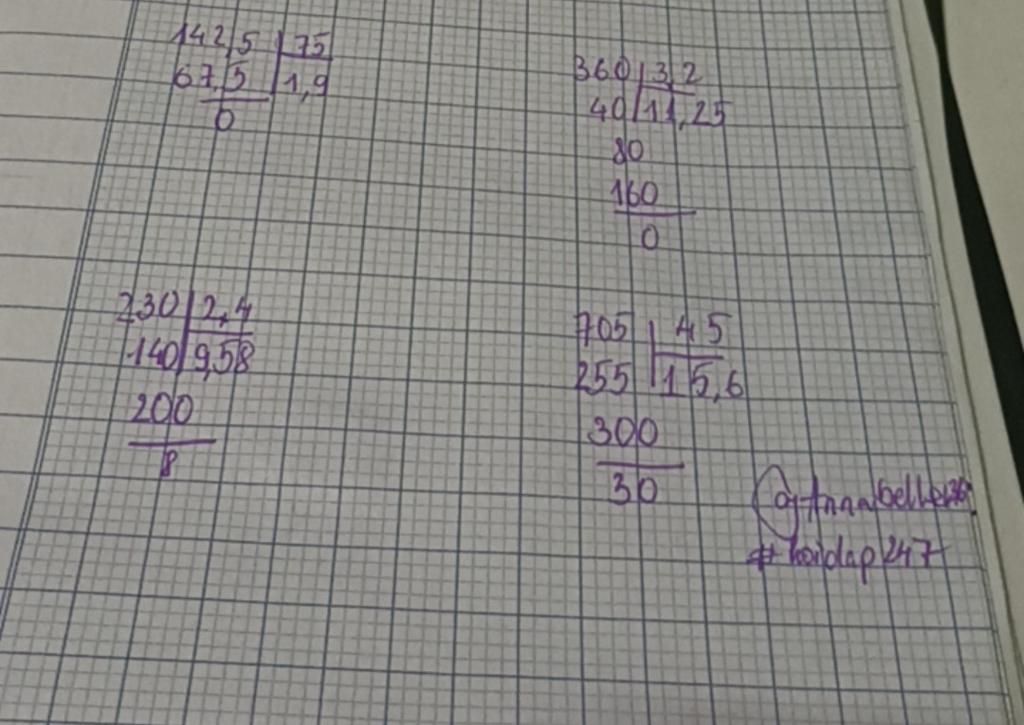 142,5 | 75
67,5 | 1,9
0
360 | 3,2
40 | 11,25
80
160
0
230 | 2,4
140 | 9,58
200
8
705 | 45
255 | 15,6
300
30
#hoidap247